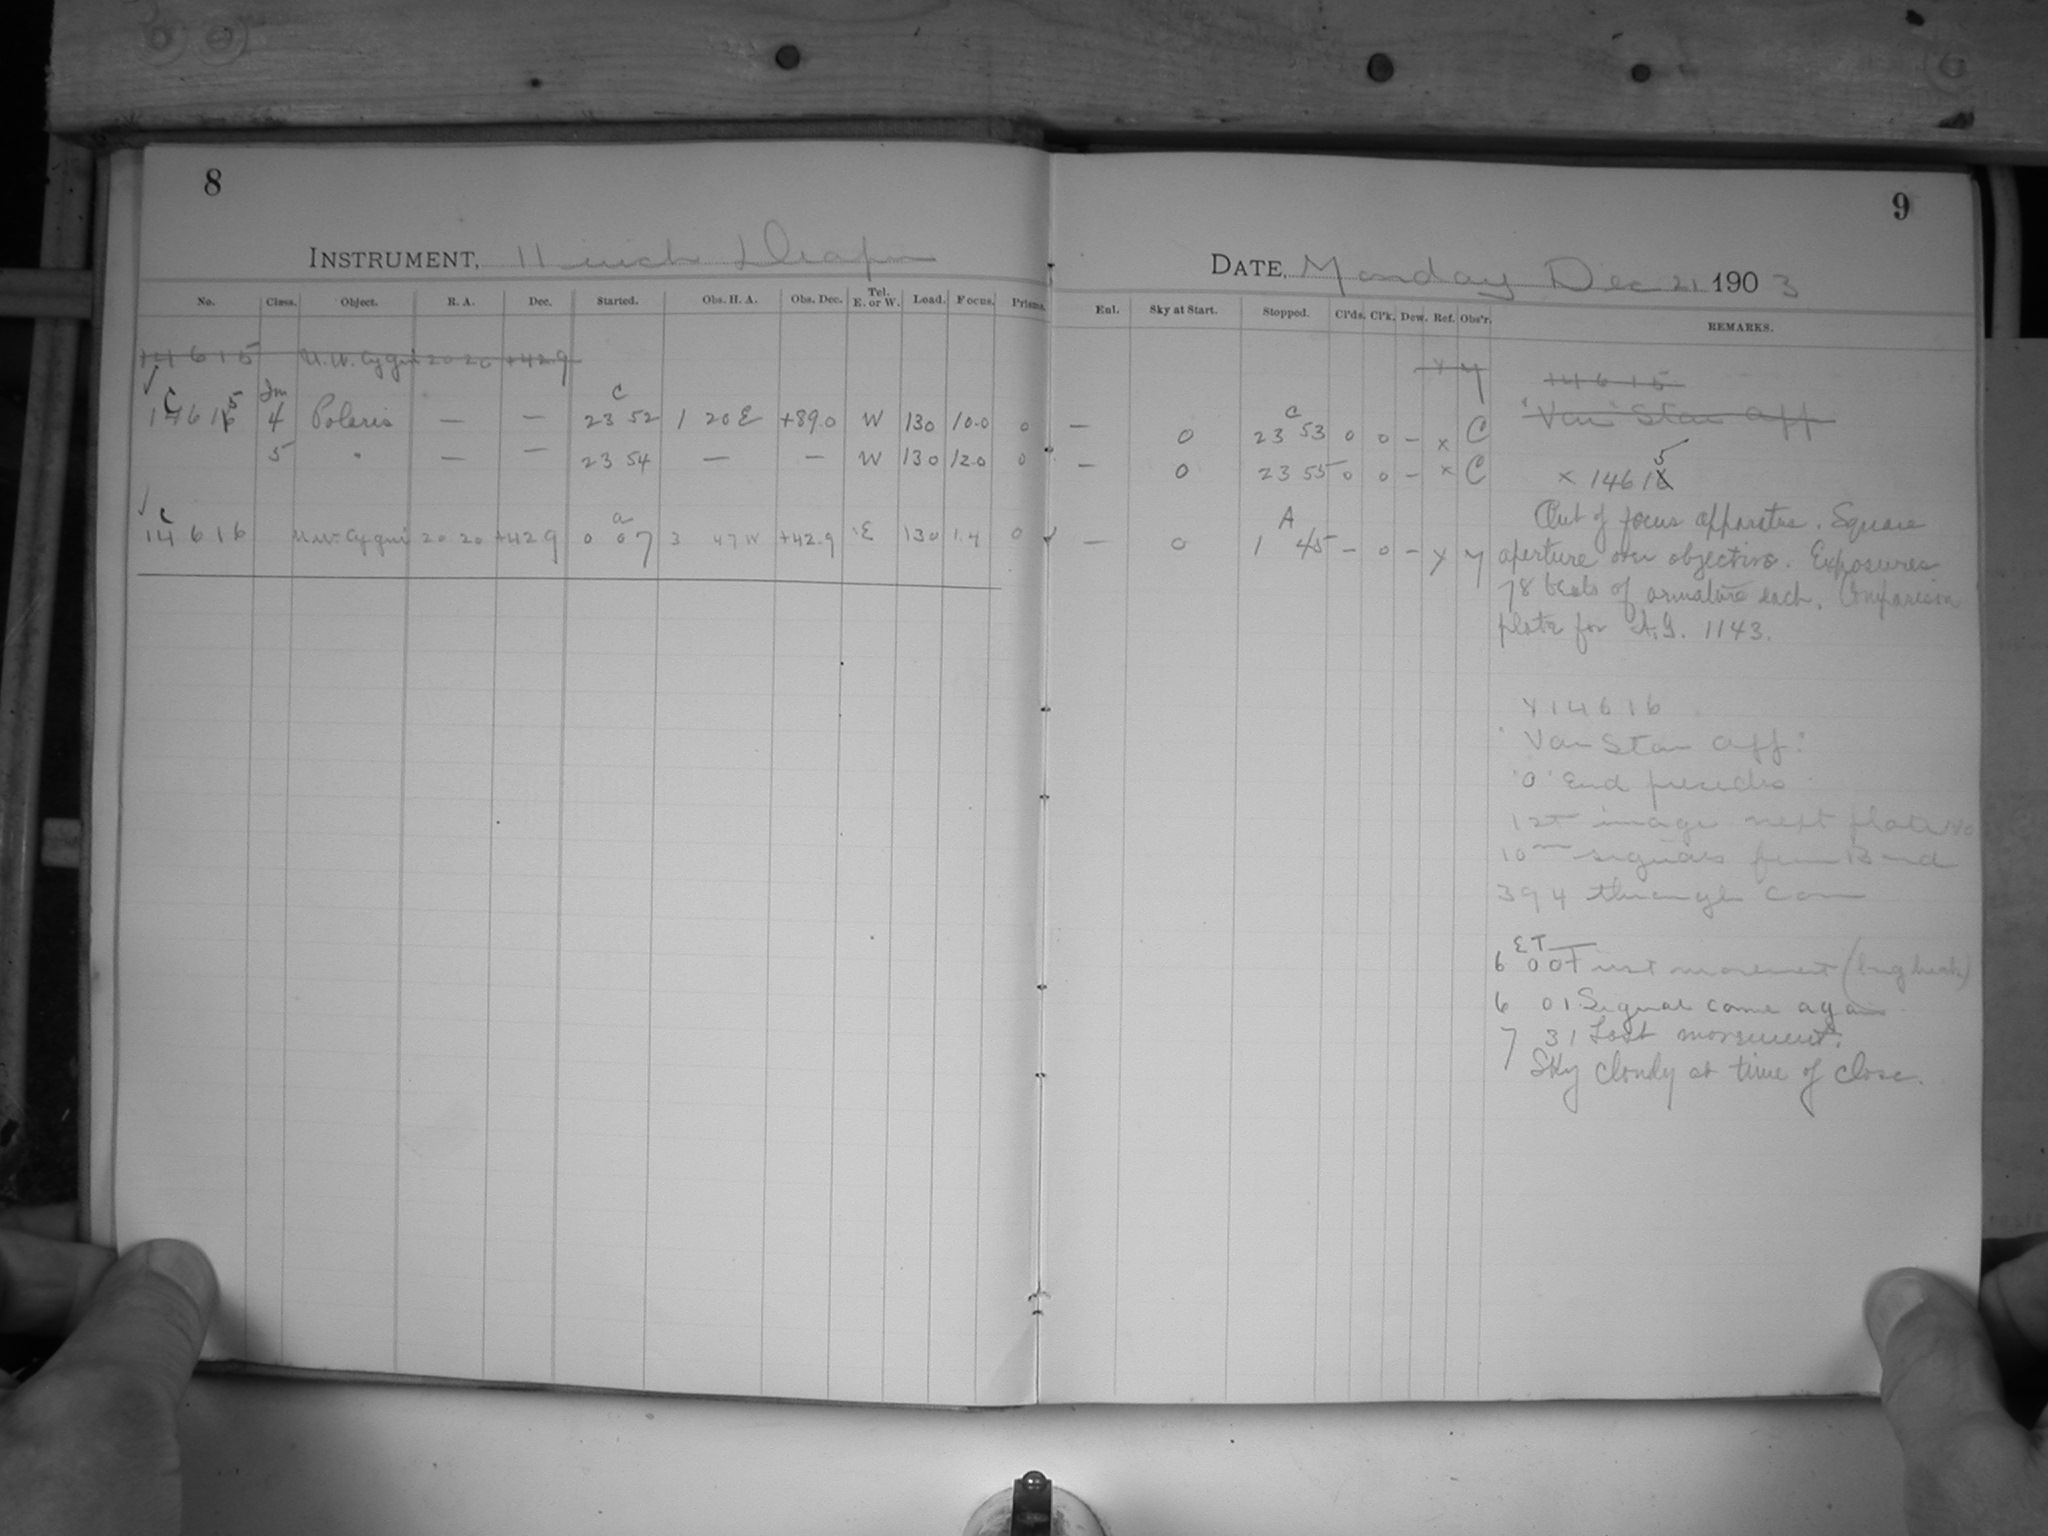 8
INSTRUMENT, 11 inch Draper
No. Class. Object. R. A. Dec. Started. Obs. H. A. Obs. Dec. Tel. E. or W. Load. Focus. Prisms.
14615 U.W. Cygni 20 20 +42.9
C Im C
14616 5 4 Polaris — — 23 52 1 20 E +89.0 W 130 10.0 0
5 " — — 23 54 — — W 130 12.0 0
C a
14616 U.W. Cygni 20 20 +42 9 0 07 3 47 W +42.9 E 130 1.4 0
9
DATE, Monday Dec 21 1903
Enl. Sky at Start. Stopped. Cl'ds. Cl'k. Dew. Ref. Obs'r. REMARKS.
x Y 14615
'Var Star aff
C
— 0 23 53 0 0 – x C
— 0 23 55 0 0 – x C x 14616 5
A
— 0 1 45 – 0 – Y Y
Out of focus apparatus. Square
aperture over objective. Exposures
78 beats of armature each. Comparison
plate for 1143.
Y 14616
'Var Star aff.'
'0' End precedes
1st image next plate No
10m signals from Bond
394 through Com
E T
6 00 First movement
6 01 Signal came again
7 31 Last movement.
Sky cloudy at time of close.